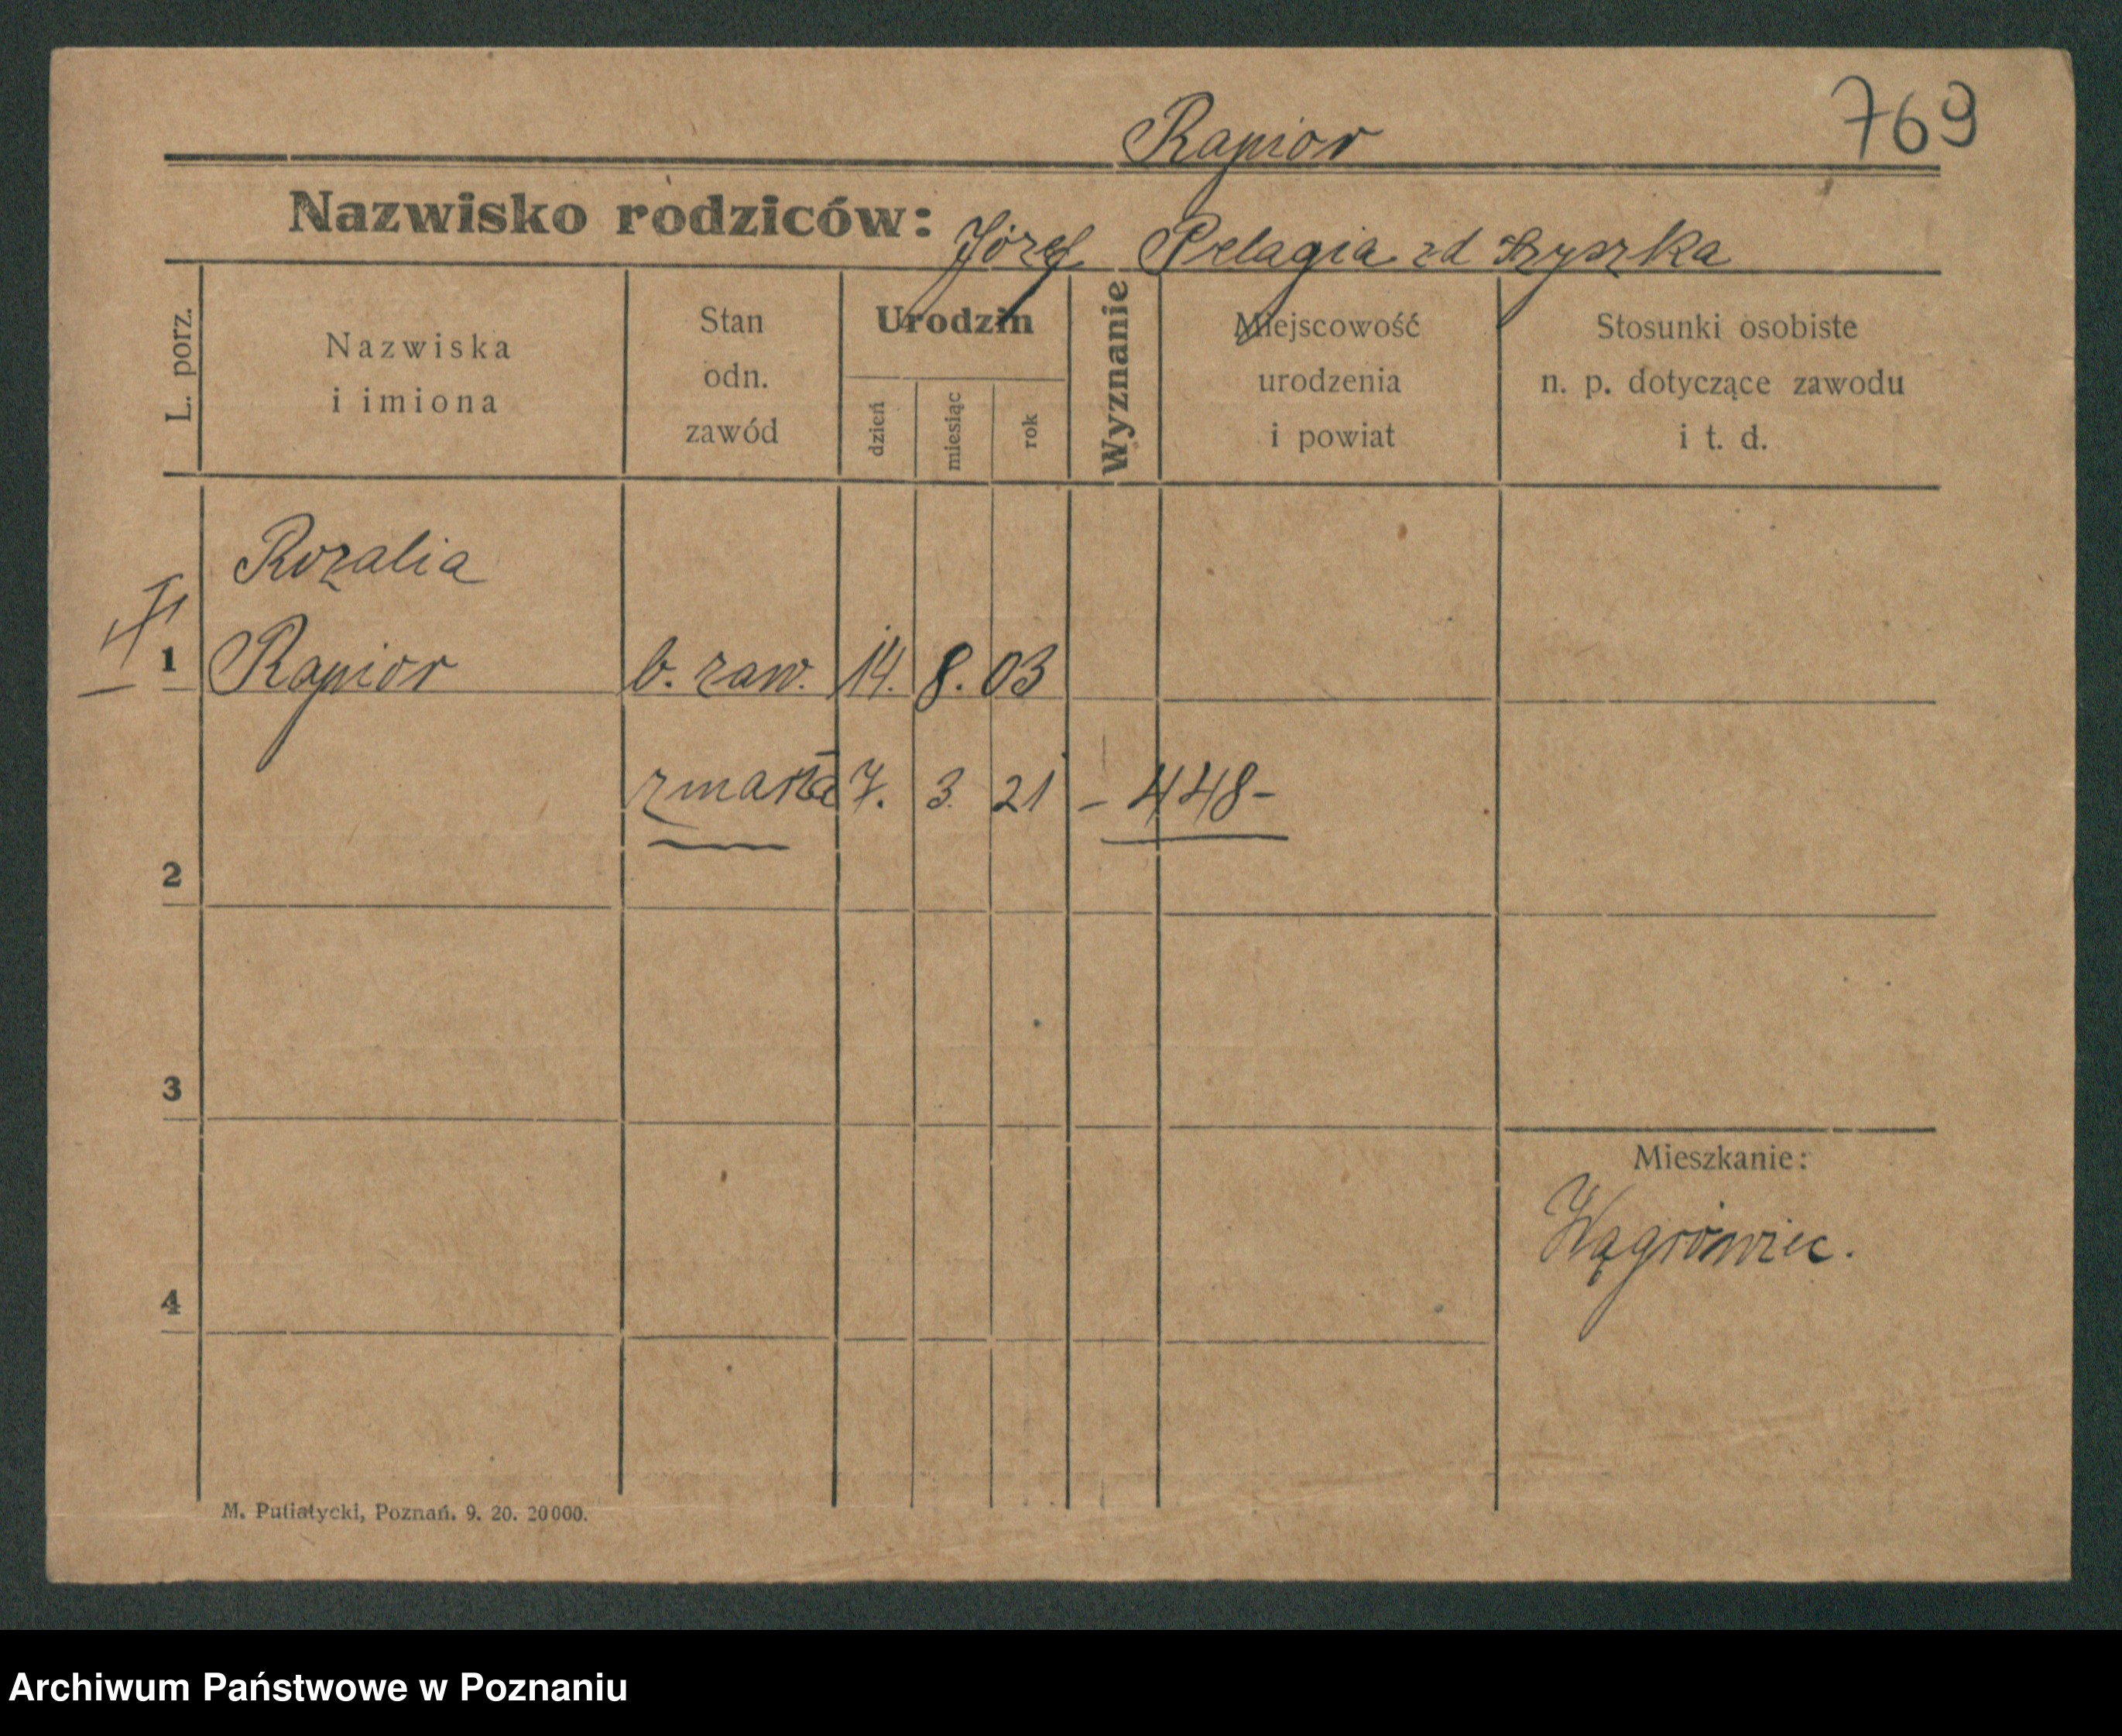 769
Rapior
Nazwisko rodziców: Józef Pelagia zd Szyszka
L. porz.
Nazwiska
i imiona
Stan
odn.
zawód
Urodzin
dzień
miesiąc
rok
Wyznanie
Miejscowość
urodzenia
i powiat
Stosunki osobiste
n. p. dotyczące zawodu
i t. d.
Rozalia
1 Rapior b. zaw. 14. 8. 03
zmarła 7. 3. 21 - 448 -
2
3
Mieszkanie:
Wągrówiec.
4
M. Putiatycki, Poznań. 9. 20. 20000.
Archiwum Państwowe w Poznaniu